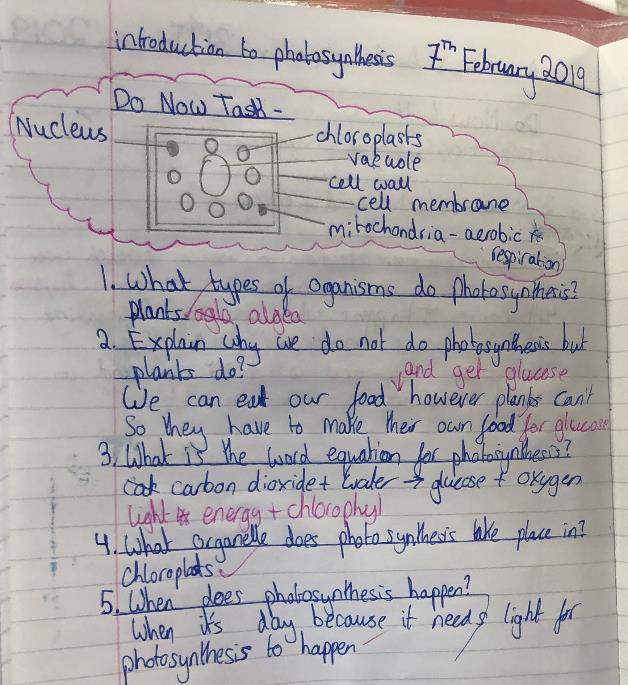 introduction to photosynthesis 7th February 2019
Do Now Task -
Nucleus
chloroplasts
vacuole
cell wall
cell membrane
mitochondria - aerobic
respiration
1. What types of organisms do Photosynthesis?
plants algea
2. Explain why we do not do photosynthesis but
plants do?
and get glucose
We can eat our food however plants can't
So they have to make their own food for glucose
3. What is the word equation for photosynthesis?
carbon dioxide + water → glucose + oxygen
light energy + chlorophyl
4. What organelle does photosynthesis take place in?
Chloroplats
5. When does photosynthesis happen?
When it's day because it needs light for
photosynthesis to happen